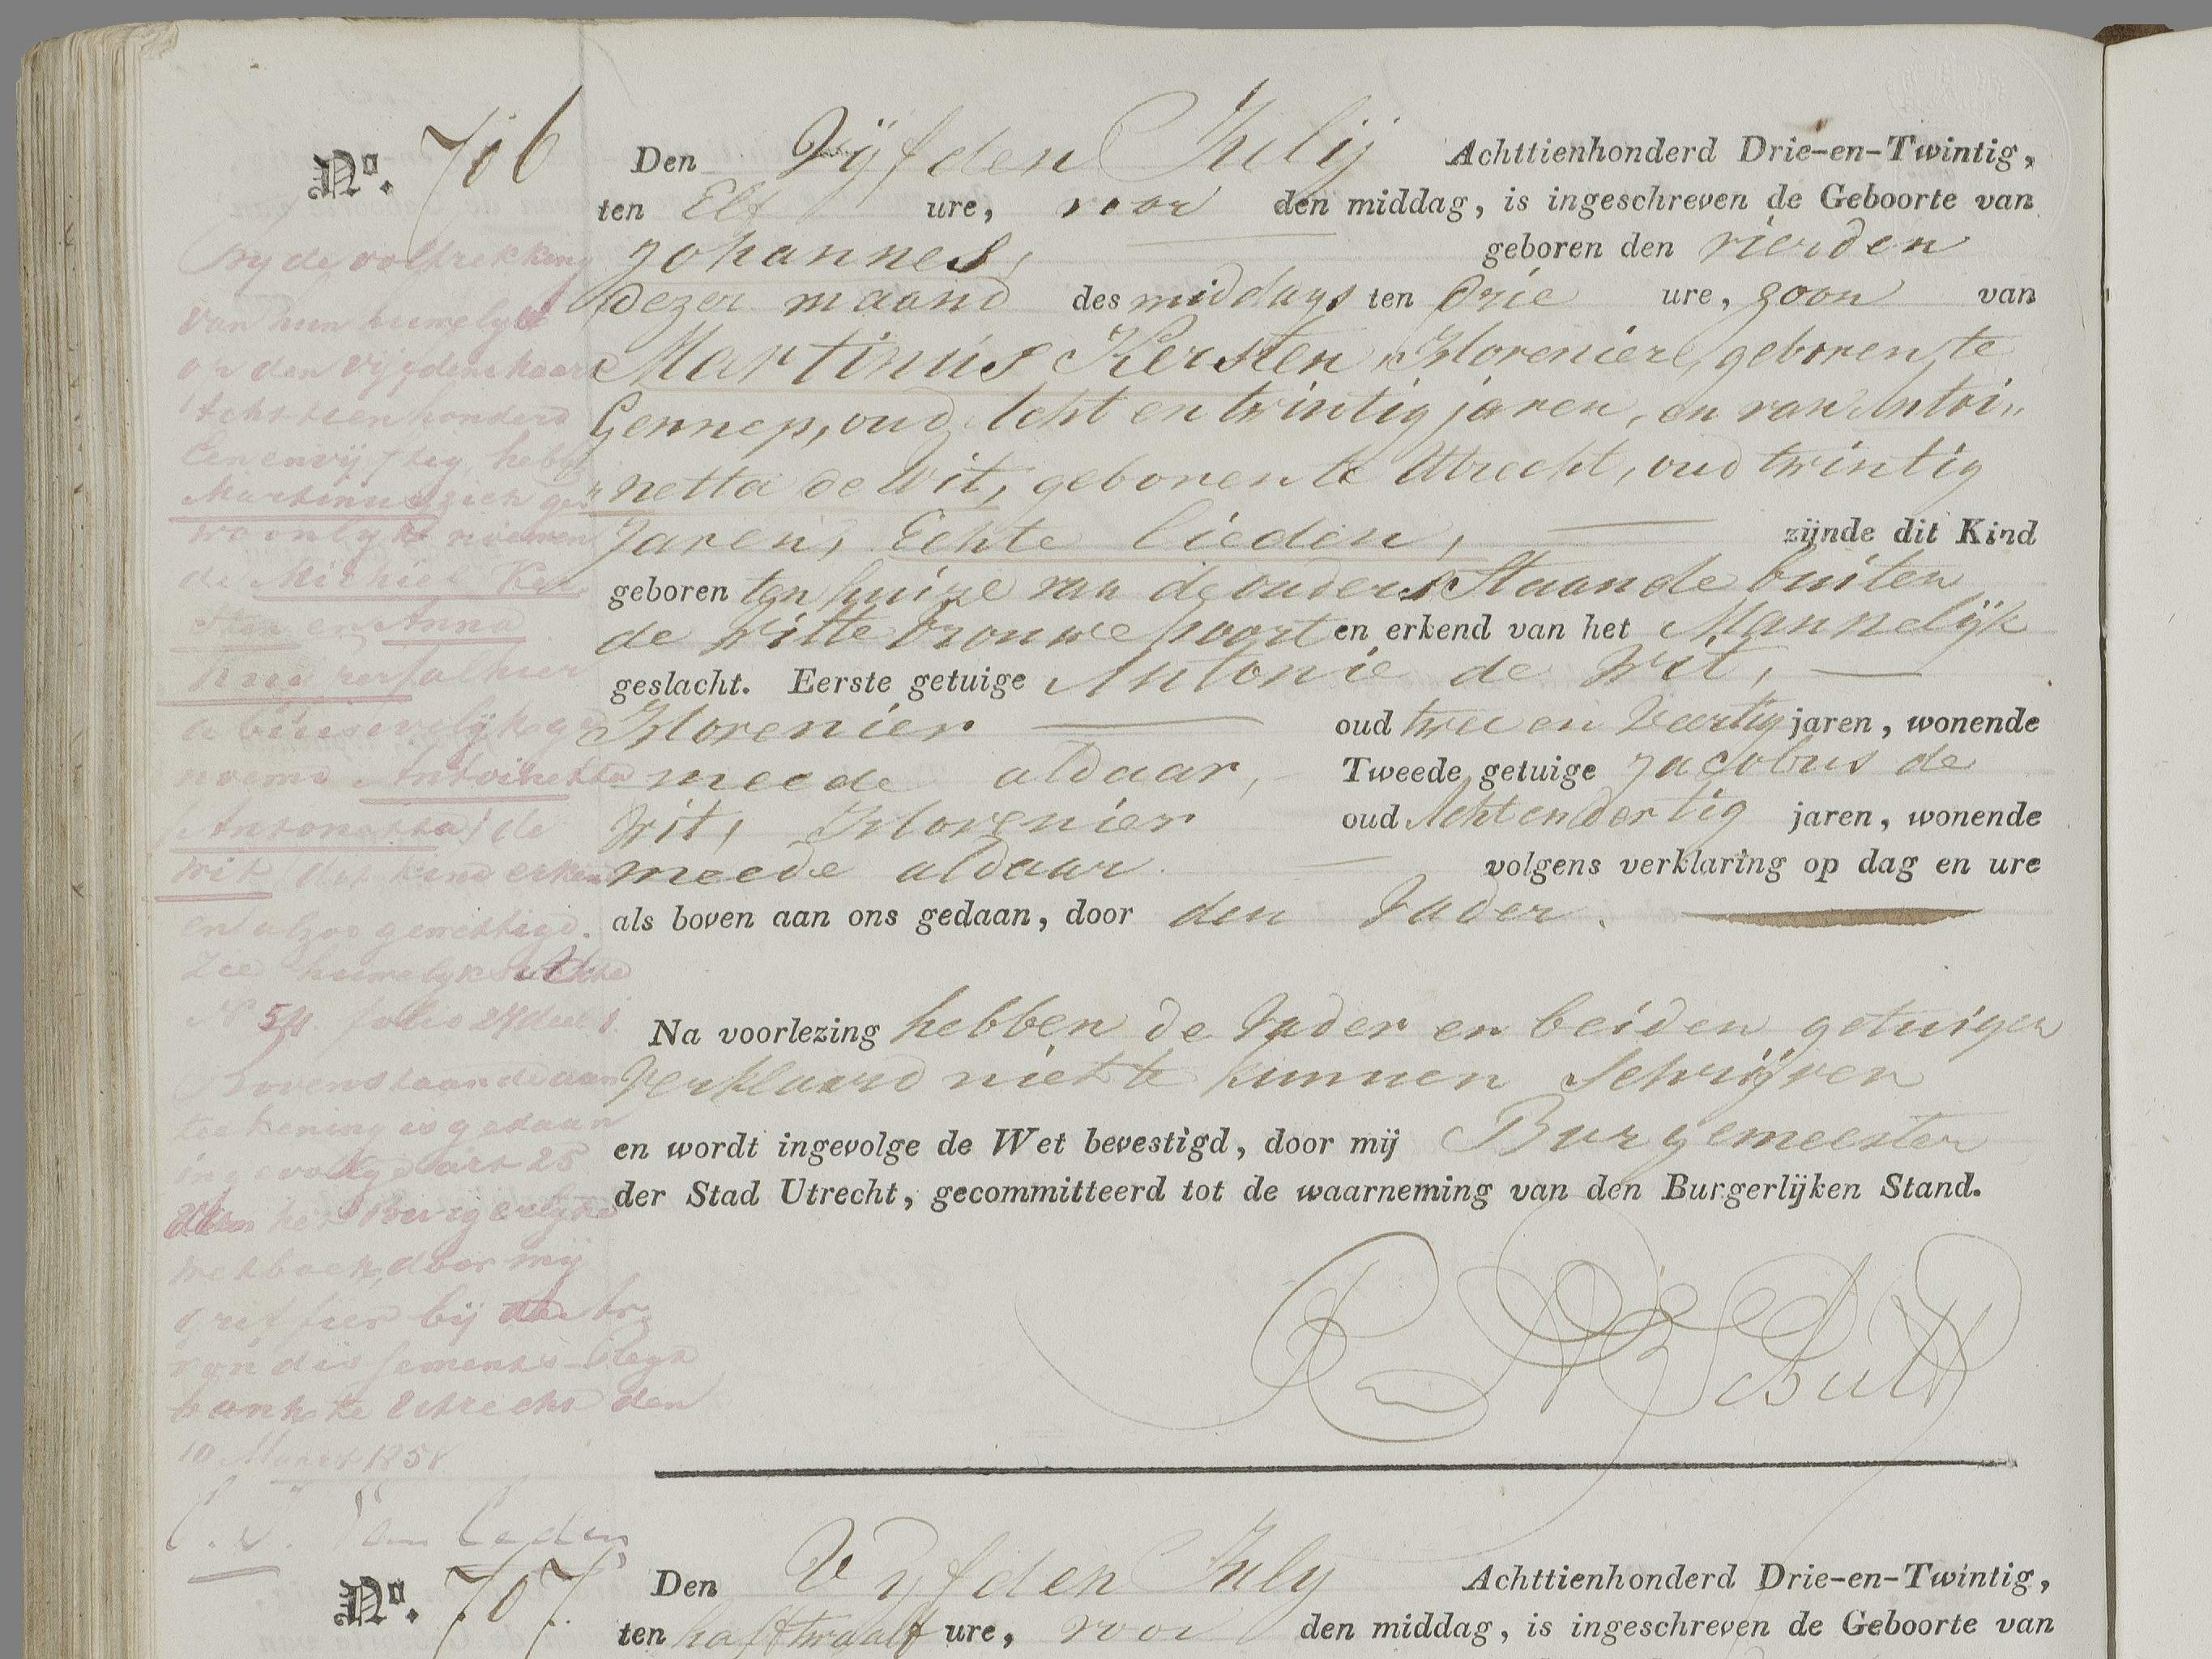 No. 706
Den Vijfden Julij Achttienhonderd Drie-en-Twintig,
ten Elf ure, voor den middag, is ingeschreven de Geboorte van
Johannes, geboren den vierden
dezer maand des middags ten Drie ure, zoon van
Martinus Kersten, Hovenier, geboren te
Gennep, oud Acht en twintig jaren, en van Antoi„
„netta de Wit, geboren te Utrecht, oud twintig
Jaren, Echte lieden, zijnde dit Kind
geboren ten huize van de ouders Staande buiten
de Witte Vrouwe poort en erkend van het Mannelijk
geslacht. Eerste getuige Antonie de Wit,
Hovenier oud twee en Veertig jaren, wonende
meede aldaar, Tweede getuige Jacobus de
Wit, Hovenier oud Achtendertig jaren, wonende
meede aldaar volgens verklaring op dag en ure
als boven aan ons gedaan, door den Vader.
Na voorlezing hebben de Vader en beiden getuigen
Verklaard niet te kunnen Schrijven
en wordt ingevolge de Wet bevestigd, door mij Burgemeester
der Stad Utrecht, gecommitteerd tot de waarneming van den Burgerlijken Stand.
By de voltrekking
van hun huwelijk
op den vijfden Maart
Achttienhonderd
Een en vijftig, hebben
Martinus zich ge
woonlijk noemen
de Michiel Ker
sten en Anna
abusivelijk ge
noemd Antoinetta
(Antonetta) de
Wit dit kind erkend
en alzoo gewettigd.
Zie huwelyks Akte
N 54 folio 27 deel 1.
Bovenstaande aan
teekening is gedaan
ingevolge art 25
van het Burgerlijke
wetboek, door mij
griffier bij de Ar
rondissements-Regt
bank te Utrecht den
10 Maart 1851
No. 707.
Den Vyfden July Achttienhonderd Drie-en-Twintig,
ten half twaalf ure, voor den middag, is ingeschreven de Geboorte van